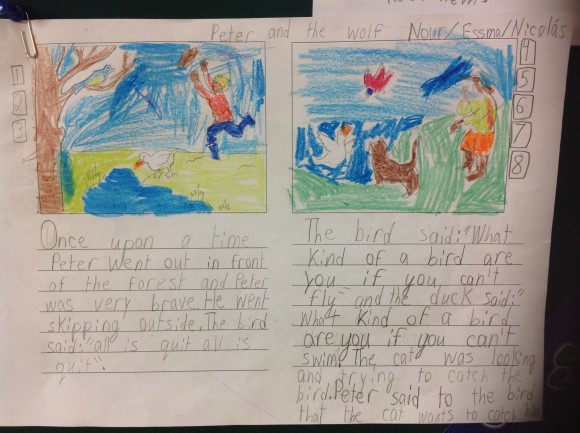 Peter and the wolf Nour/Essma/Nicolás
1
2
3
4
5
6
7
8
Once upon a time
Peter went out in front
of the forest and Peter
was very brave. He went
skipping outside. The bird
said: "all is quit all is
quit".
The bird said: "What
kind of a bird are
you if you can't
fly" and the duck said:"
what kind of a bird
are you if you can't
swim. The cat was looking
and trying to catch the
bird. Peter said to the bird
that the cat wants to catch